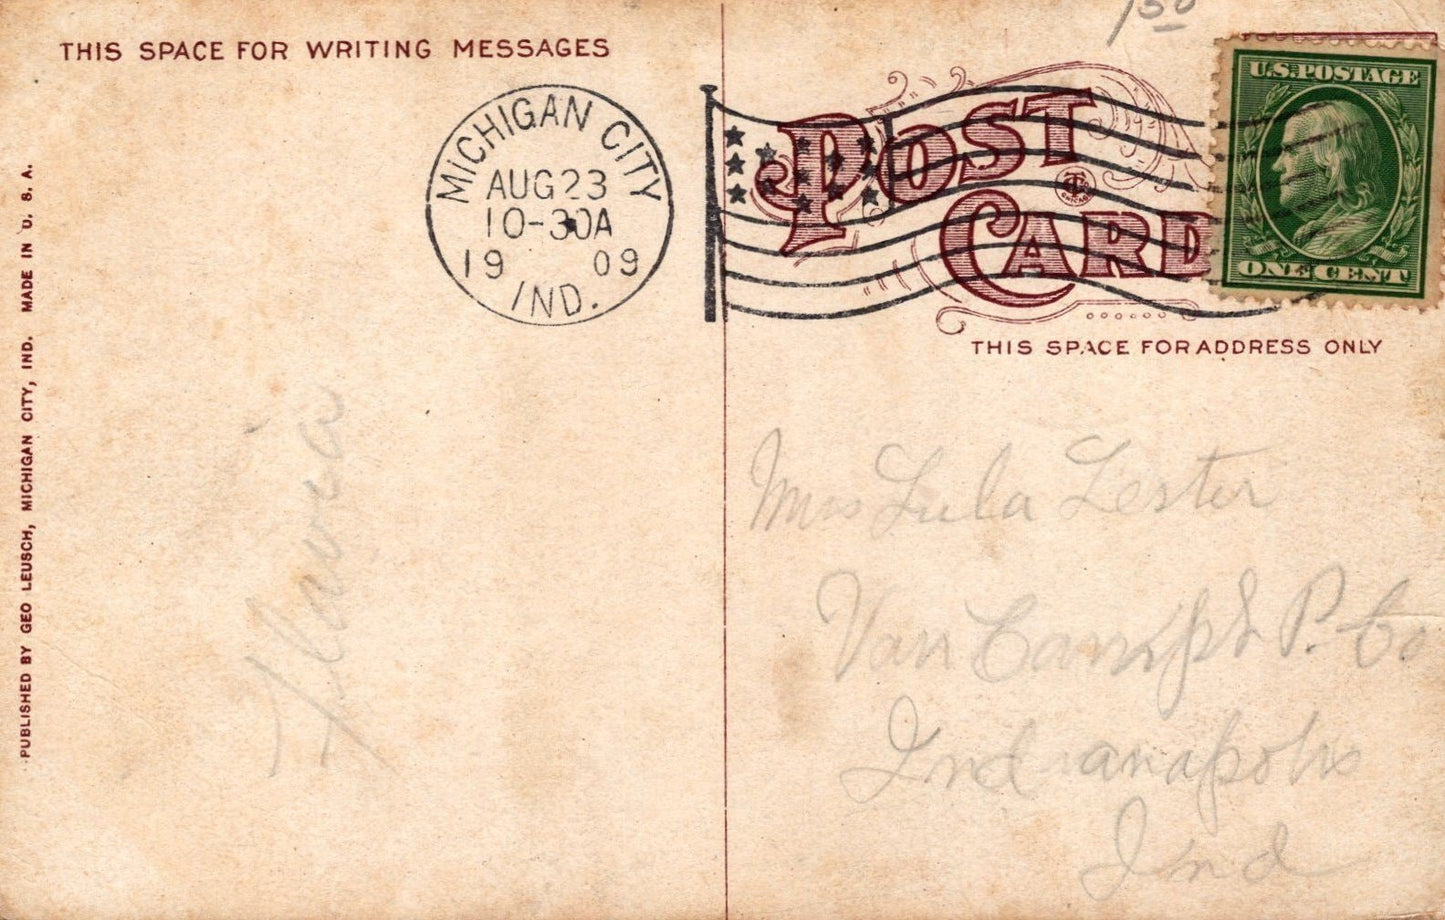 THIS SPACE FOR WRITING MESSAGES
150
U.S. POSTAGE
ONE CENT
MICHIGAN CITY
AUG 23
10-30A
1909
IND.
POST
CARD
CHICAGO
THIS SPACE FOR ADDRESS ONLY
PUBLISHED BY GEO LEUSCH, MICHIGAN CITY, IND. MADE IN U. S. A.
Flavia
Miss Lula Lester
Van Camp P. Co
Indianapolis
Ind